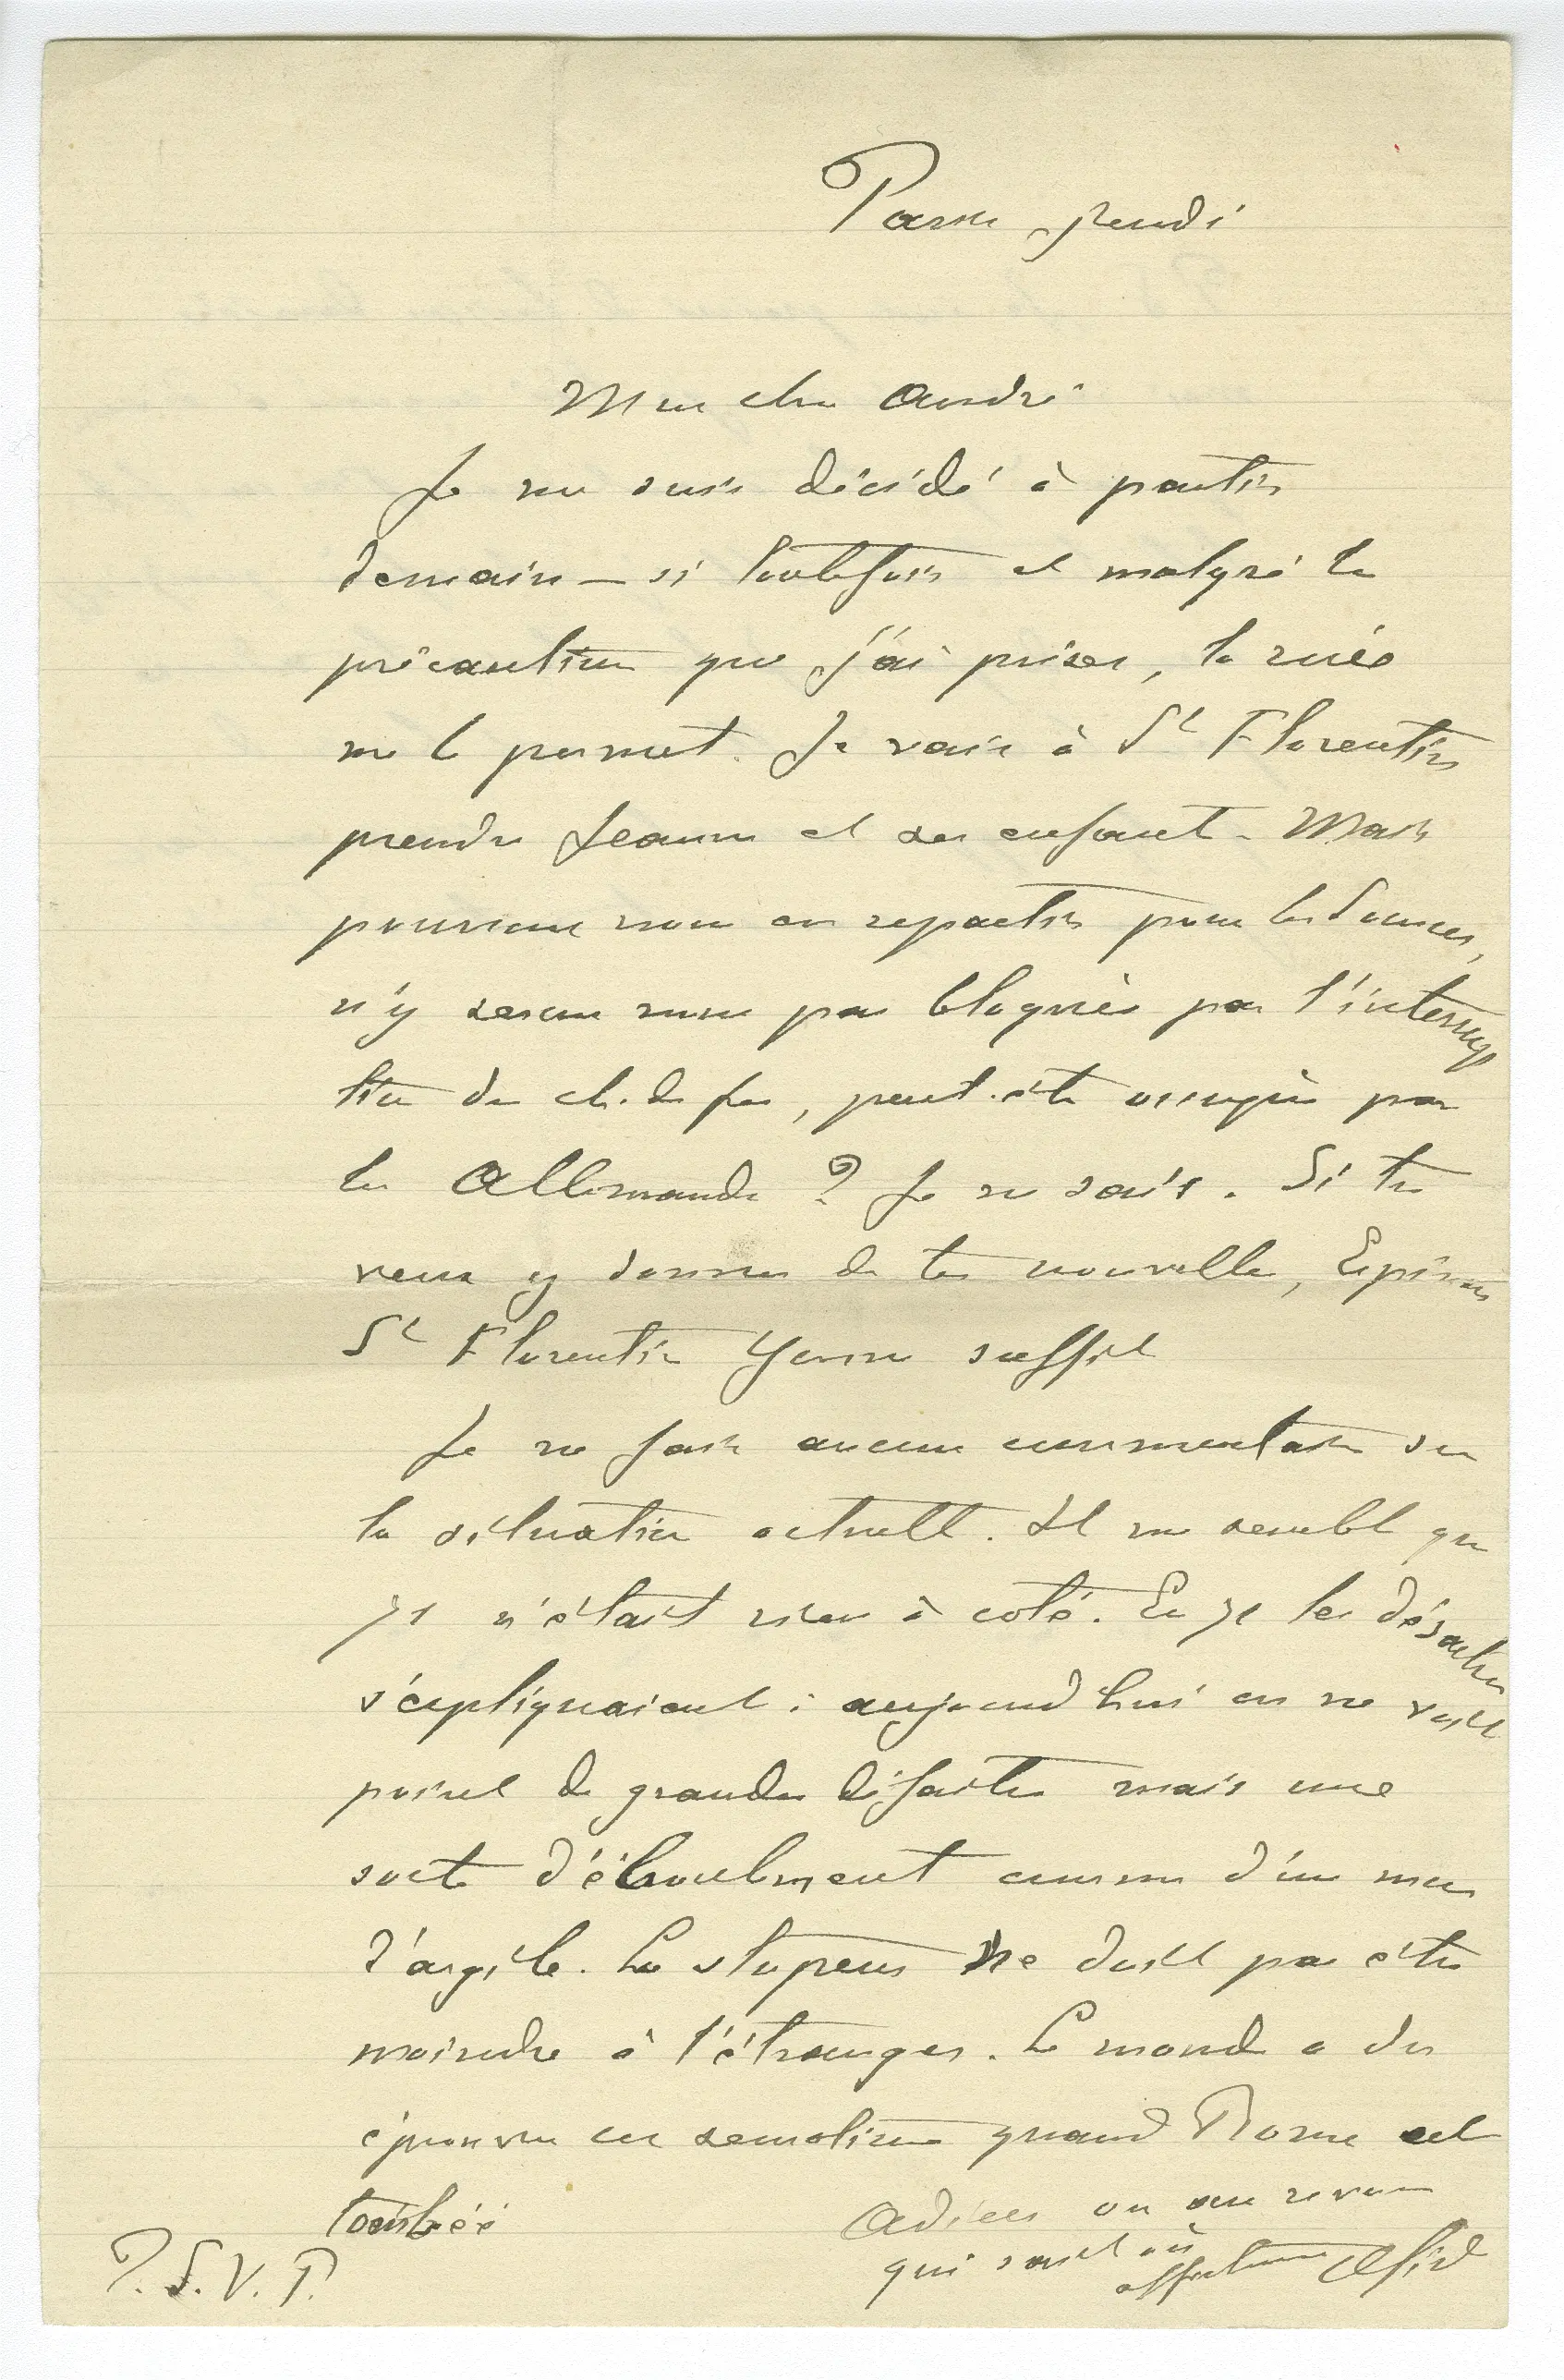 Paris jeudi
Mon cher André
Je me suis décidé à partir
demain — si toutefois et malgré les
précautions que j'ai prises, la ruée
me le permet. Je vais à St Florentin
prendre Jeanne et ses enfants. Mais
pourrons nous en repartir pour les Sources,
n'y serons nous pas bloqués par l'interrup
tion du ch. de fer, peut-être occupés par
les Allemands ? Je ne sais. Si tu
veux y donner de tes nouvelles,
St Florentin Yonne suffit
Je ne fais aucun commentaire sur
la situation actuelle. Il me semble que
71 n'était rien à coté. En 71 les désastres
s'expliquaient : aujourd'hui on ne voit
point de grandes défaites mais une
sorte d'éboulement comme d'un mur
d'argile. La stupeur ne doit pas être
moindre à l'étranger. Le monde a du
éprouver ces sensations quand Rome est
tombée
Adieu ou au revoir
qui sait où
affectueux
P.S.V.P.